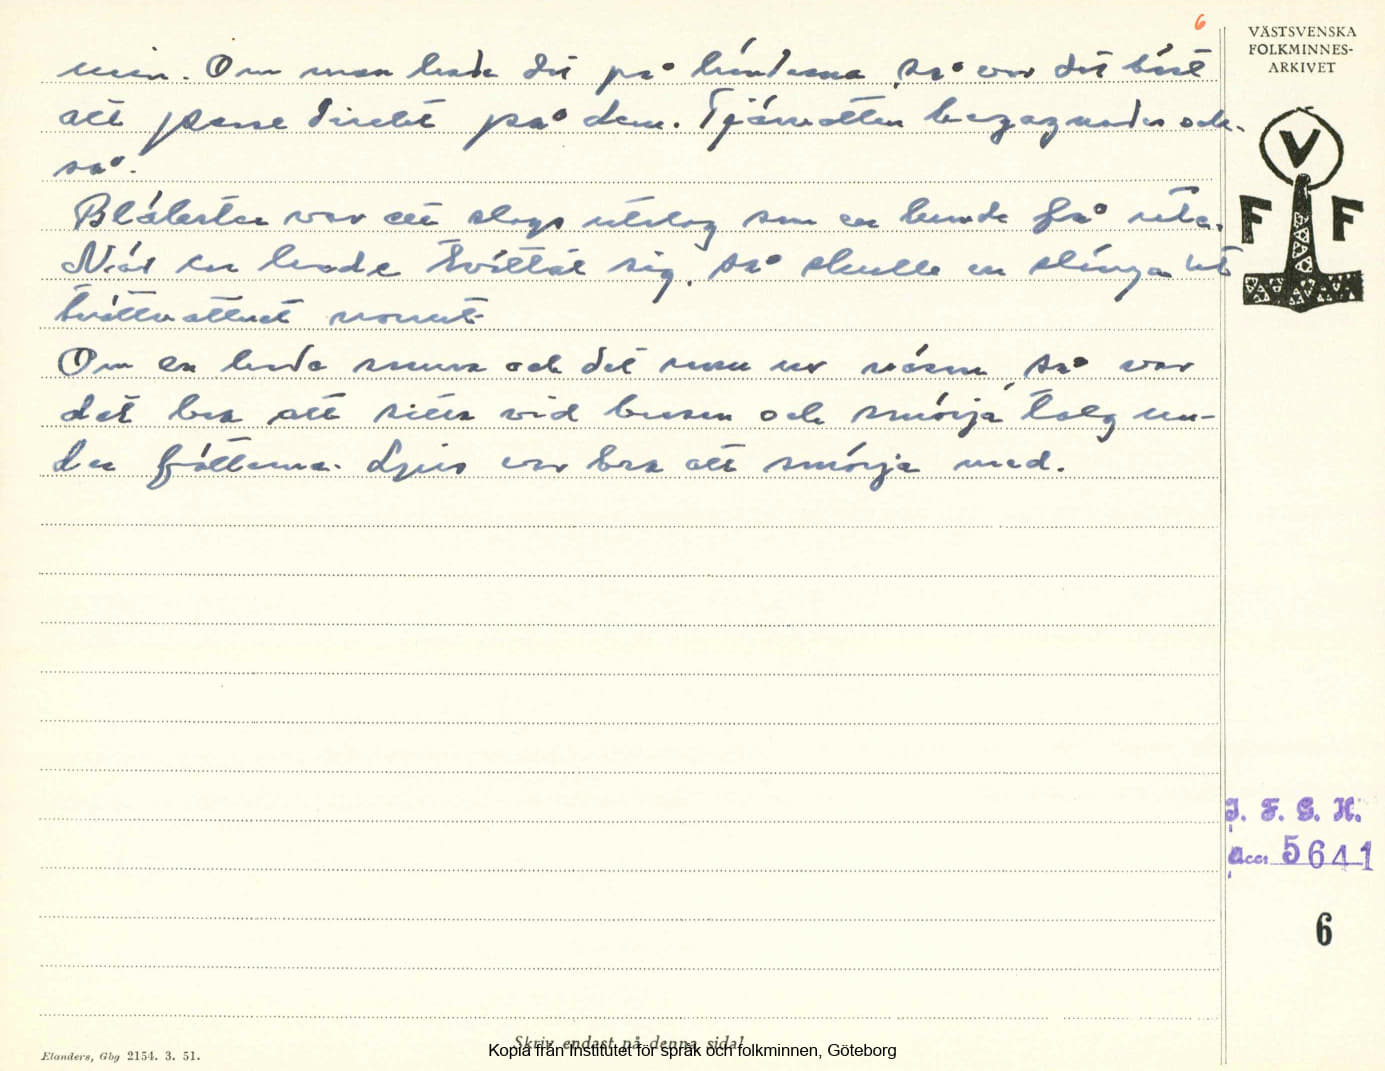 6
VÄSTSVENSKA
FOLKMINNES-
ARKIVET
V
F F
urin. Om man hade det på händerna, så var det bäst
att pissa direkt på dem. Tjärvatten begagnades ock-
så.
Blåbester var ett slags utslag som en kunde få ute.
När en hade tvättat sig, så skulle en slänga ut
tvättvattnet norrut
Om en hade snuva och det rann ur näsan, så var
det bra att sitta vid brasan och smörja talg un-
der fötterna. Ljus var bra att smörja med.
I. F. G. H.
acc. 5641
6
Skriv endast på denna sida!
Kopia från Institutet för språk och folkminnen, Göteborg
Elanders, Gbg 2154. 3. 51.